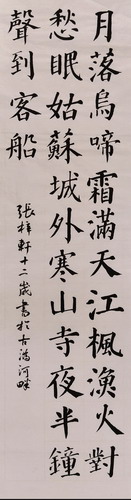 月落烏啼霜滿天江楓漁火對
愁眠姑蘇城外寒山寺夜半鐘
聲到客船
張梓軒十二歲書於古河畔